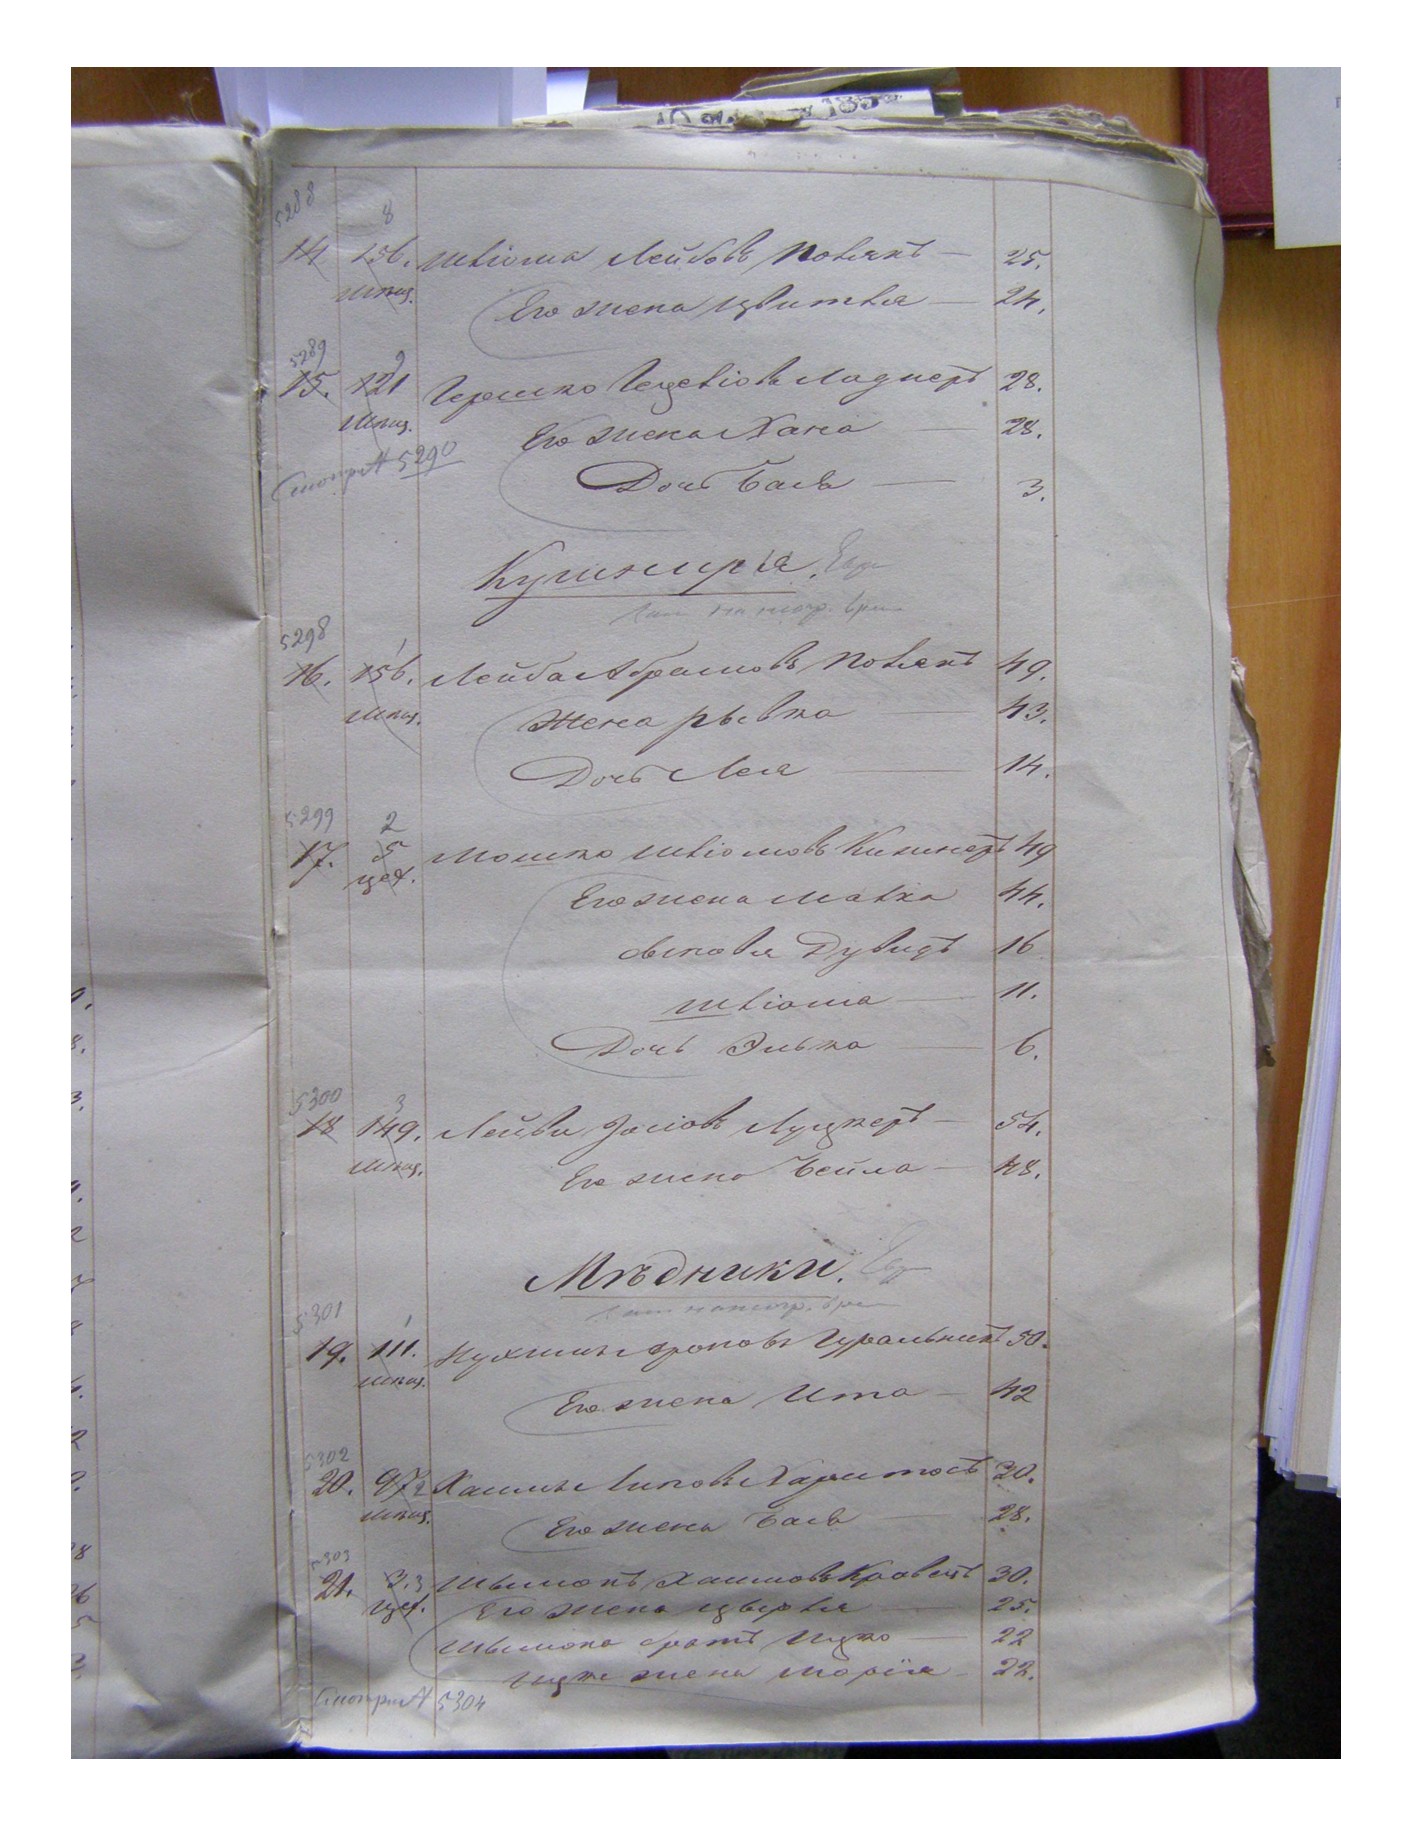 1852
5288 8
14 156. Шліома Лейбовъ Полякъ — 25.
мѣщ. Его жена Цвитля — 24.
5289 9
15. 121 Гершко Гецеліовъ Ладнеръ 28.
мѣщ. Его жена Хана — 28.
Смотри № 5290
Дочь Бася — 3.
Кушниря. Евр
5298 1
16. 156. Лейба Абрамовъ Полякъ 49.
мѣщ. Жена Рывка — 43.
Дочь Лея — 14.
5299 2
17. 5 Мошко Шліомовъ Кишнеръ 49
цех. Его жена Малка 44.
сыновья Дувидъ 16
Шліома — 11.
Дочь Элька — 6.
5300 3
18 149. Лейви Іосіовъ Луцкеръ — 54.
мѣщ. Его жена Бейла — 48.
Мѣдники. Евр
5301 1
19. 111. Нухимъ Ароновъ Гуральникъ 50.
мѣщ. Его жена Ита — 42
5302
20. 97 2 Хаимъ Липовъ Харитонъ 30.
мѣщ. Его жена Бася — 28.
5303
21. 3. 3 Шымонъ Хаимовъ Кравецъ 30.
цех. Его жена Цверля — 25.
Шымона братъ Ицко — 22
Ицки жена Марія — 22.
Смотри № 5304